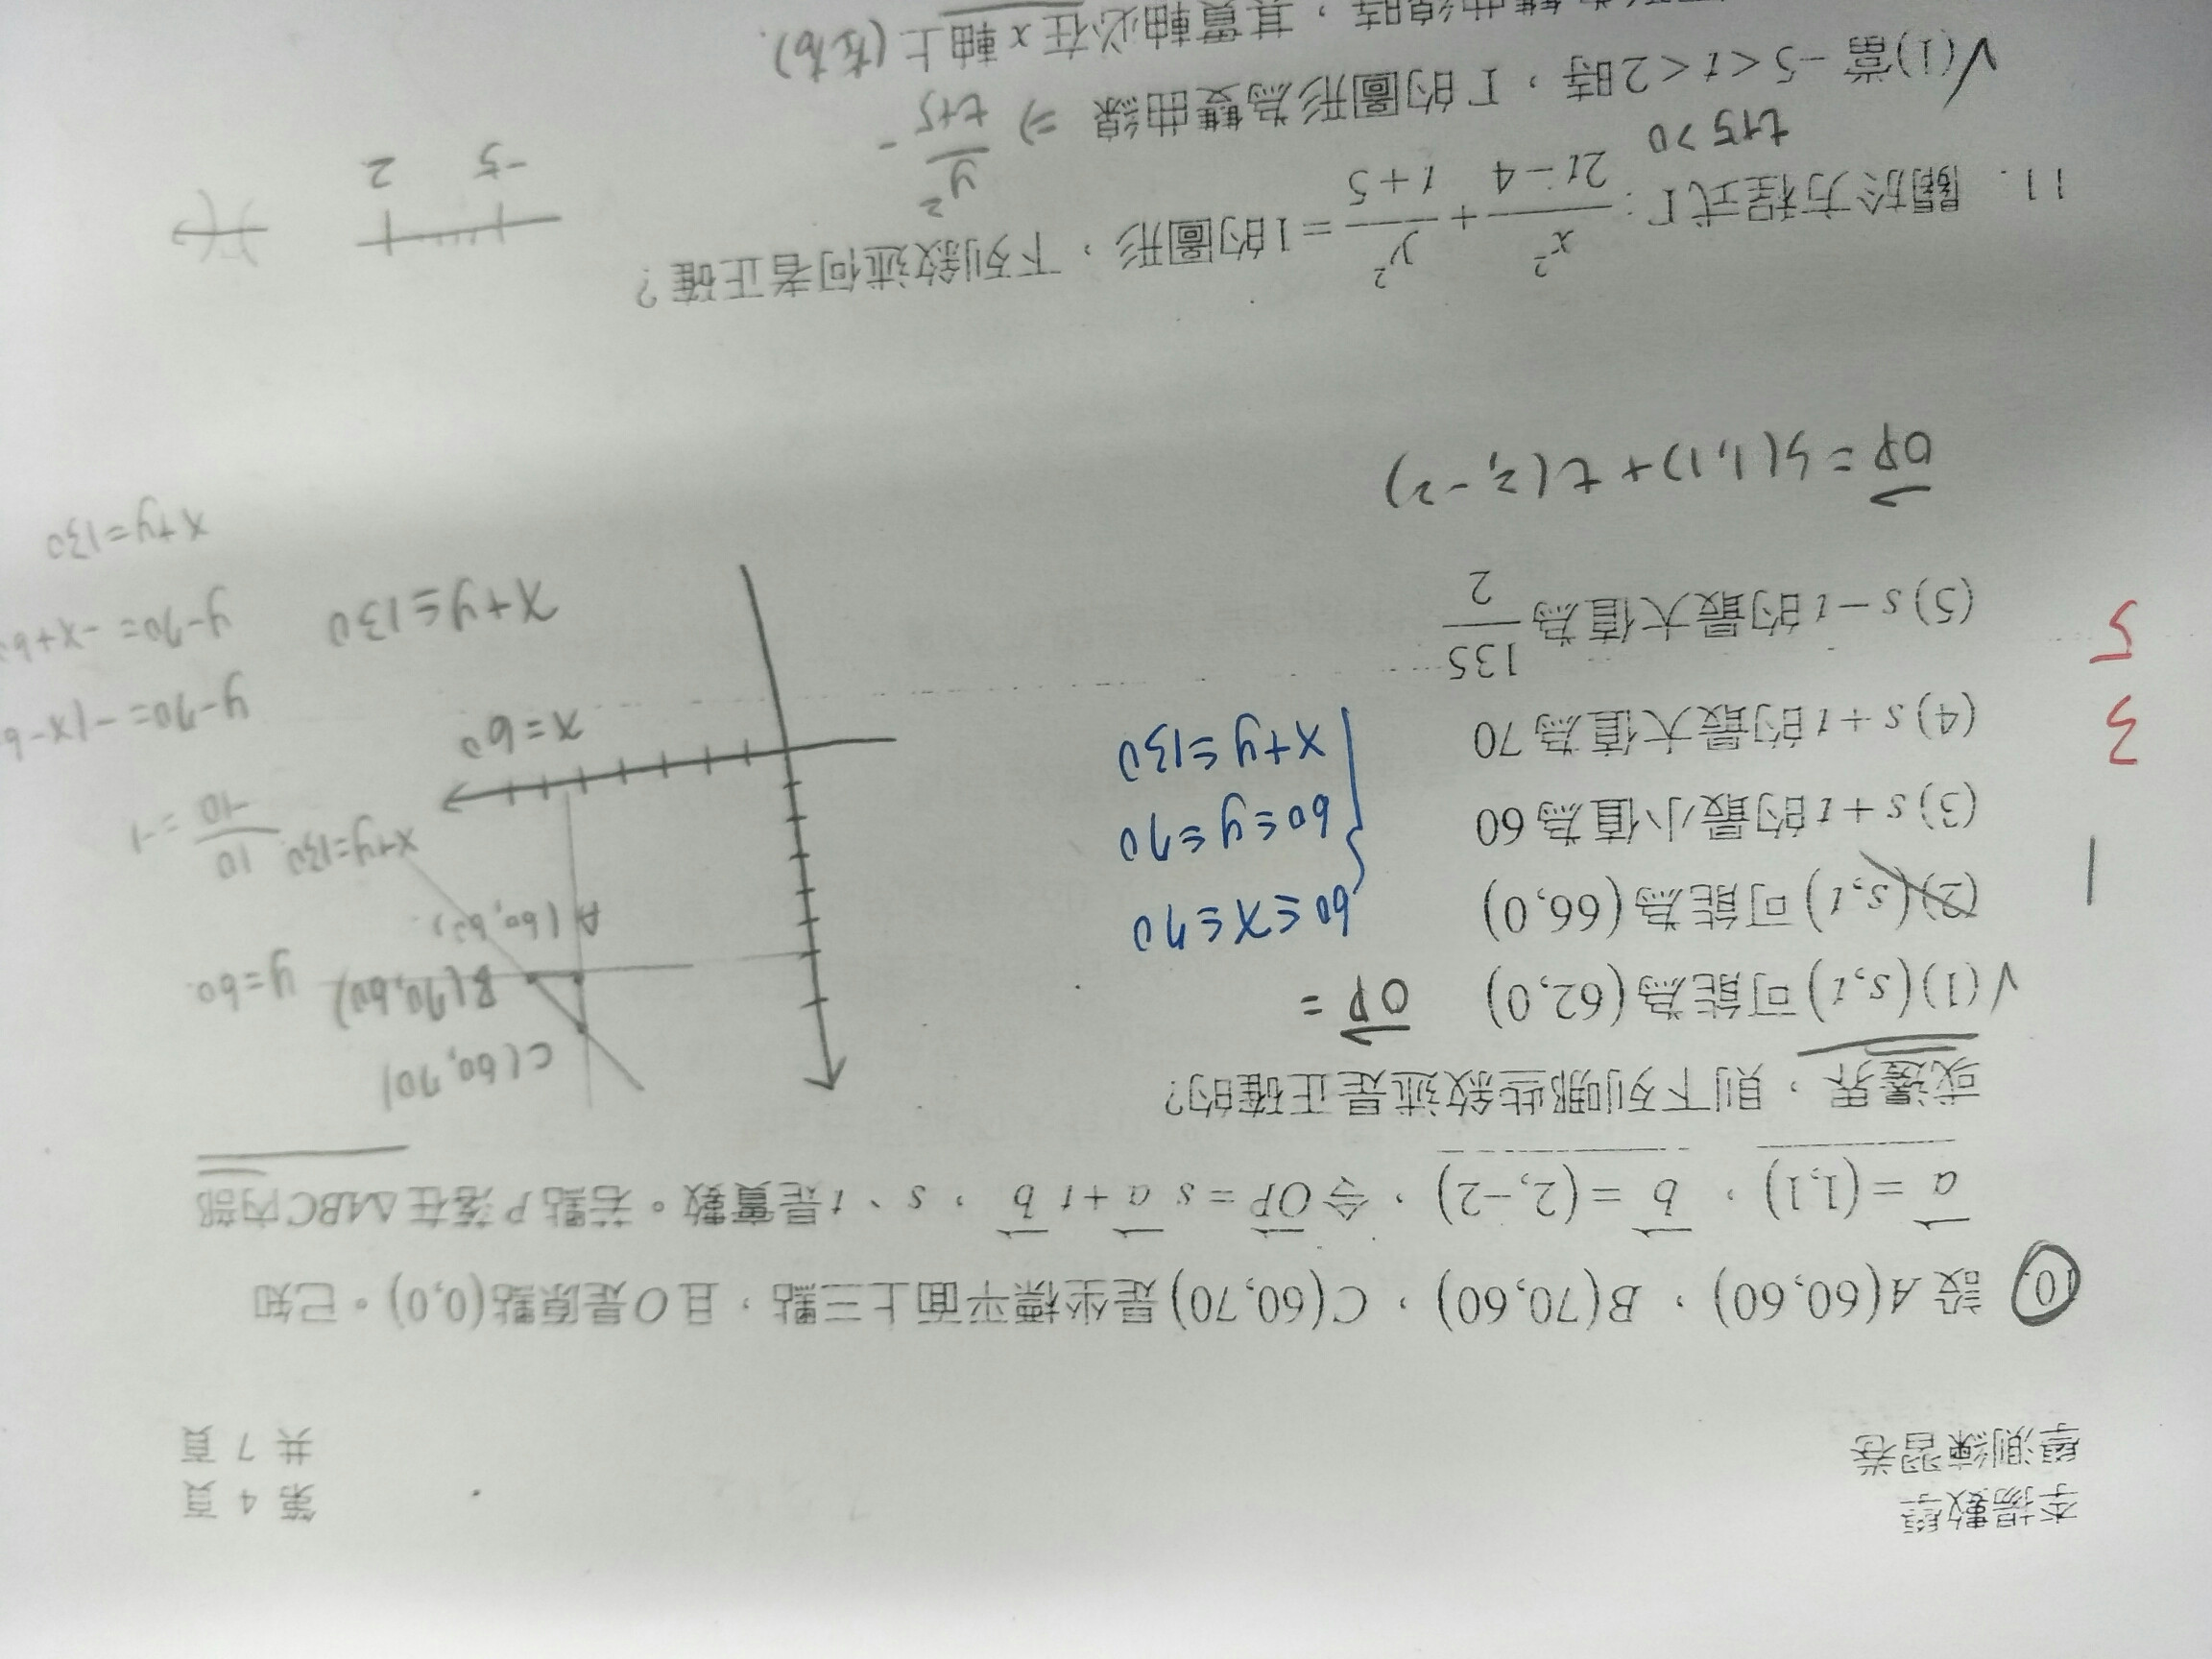 李揚數學
學測練習卷
第 4 頁
共 7 頁
10. 設 A(60,60)、B(70,60)、C(60,70)是坐標平面上三點,且O是原點(0,0)。已知
a = (1,1), b = (2,-2),令OP = s a + t b,s、t是實數。若點P落在ΔABC內部
或邊界,則下列哪些敘述是正確的?
√(1)(s,t)可能為(62,0) OP =
(2)(s,t)可能為(66,0)
(3) s+t的最小值為60
(4) s+t的最大值為70
(5) s-t的最大值為 135/2
1
3
5
60≤x≤70
60≤y≤70
x+y≤130
C(60,70)
B(70,60)
y=60
A(60,60)
x+y=130
x=60
x+y≤130
10/-10 = -1
y-70=-(x-6
y-70=-x+6
x+y=130
OP = s(1,1)+t(2,-2)
11. 關於方程式Γ: x²/(2t-4) + y²/(t+5) = 1的圖形,下列敘述何者正確?
t+5>0
y²/t+5 -
-5 2
√(1)當 -5<t<2時,Γ的圖形為雙曲線 ⇒
時,其實軸必在x軸上(左右).